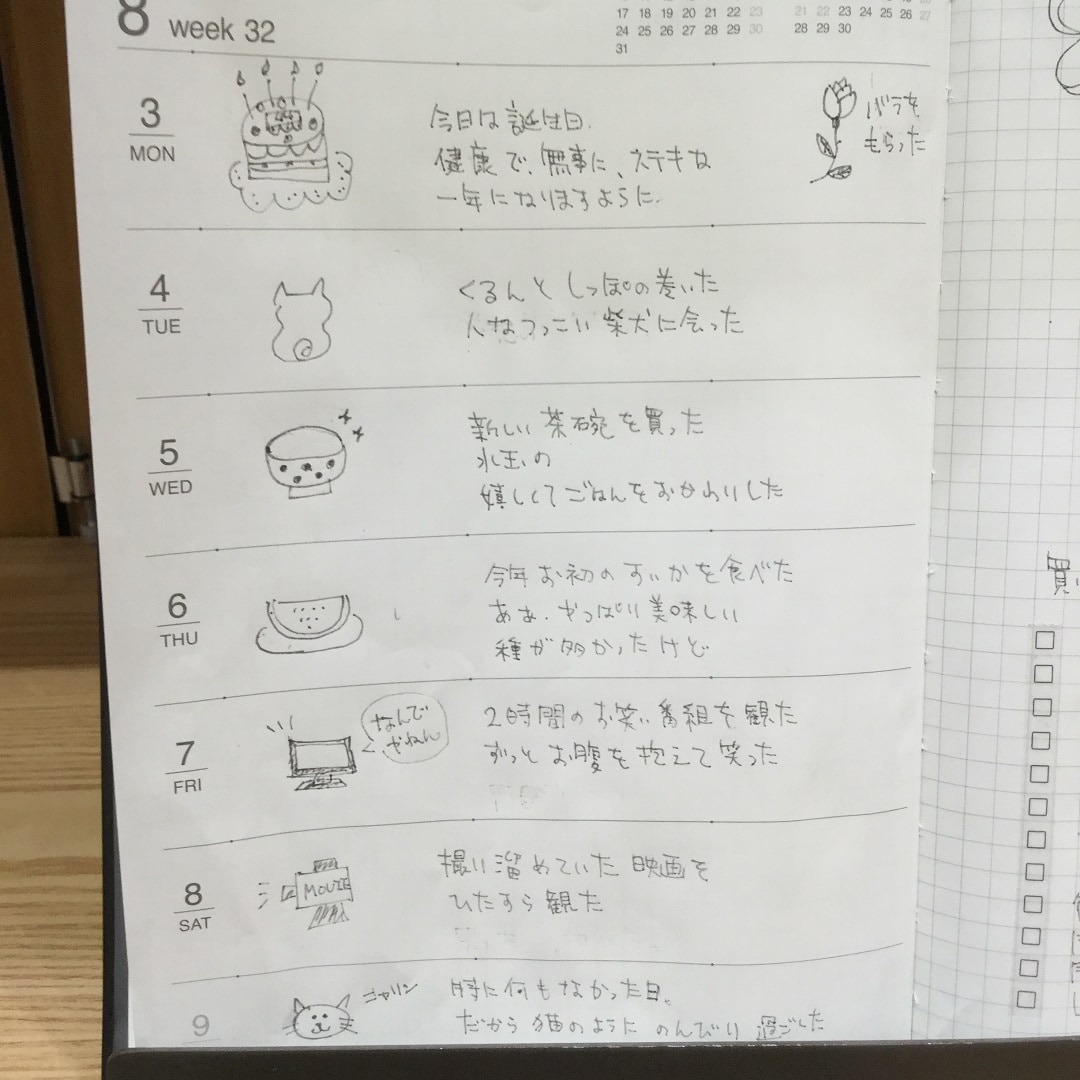 8 week 32
17 18 19 20 21 22 23
24 25 26 27 28 29 30
31
21 22 23 24 25 26 27
28 29 30
3
MON
今日は誕生日.
健康で、無事に、ステキな
一年になりますように.
バラを
もらった
4
TUE
くるんと しっぽの巻いた
人なつっこい 柴犬に会った
5
WED
新しい 茶碗を買った
水玉の
嬉しくてごはんをおかわりした
6
THU
今年お初のすいかを食べた
あぁ、やっぱり美味しい
種が多かったけど
7
FRI
なんで
やねん
2時間のお笑い番組を観た
ずっとお腹を抱えて笑った
8
SAT
MOVIE
撮り溜めていた 映画を
ひたすら観た
9
ニャリン
特に何もなかった日。
だから 猫のように のんびり 過ごした
買